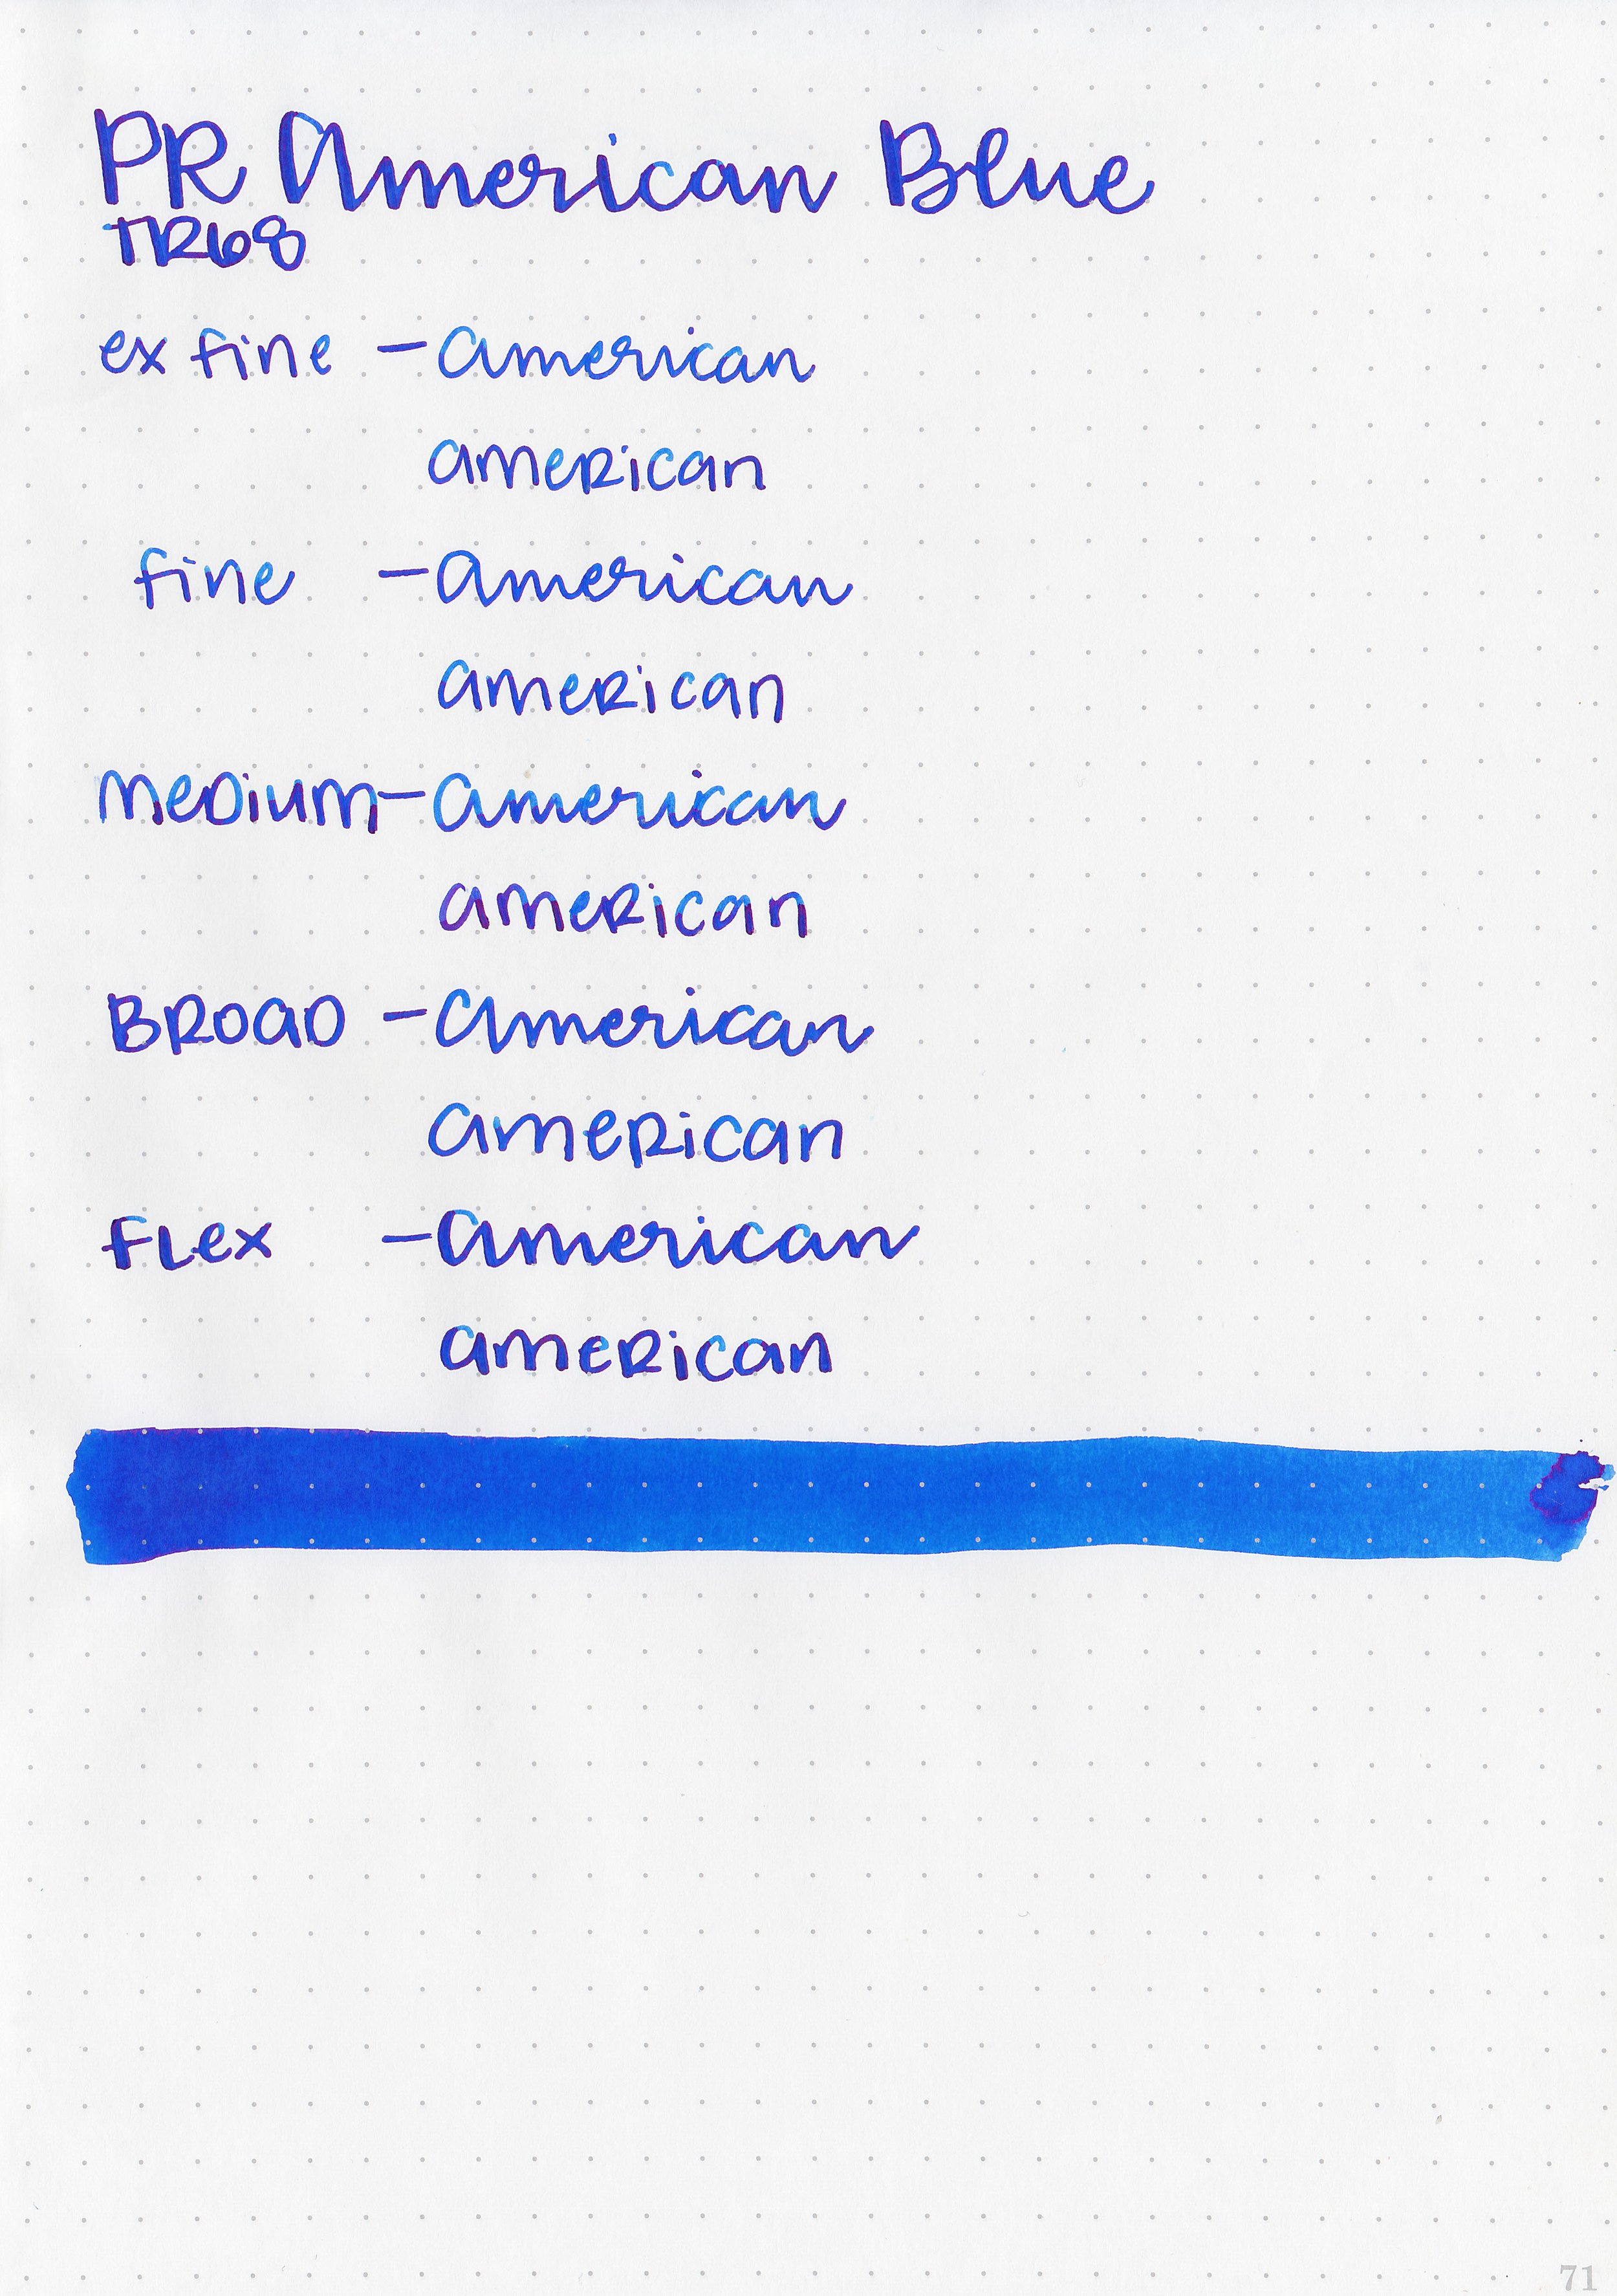 PR American Blue
TR68
ex fine - American
american
fine - American
american
medium - American
american
Broad - American
american
Flex - American
american
71